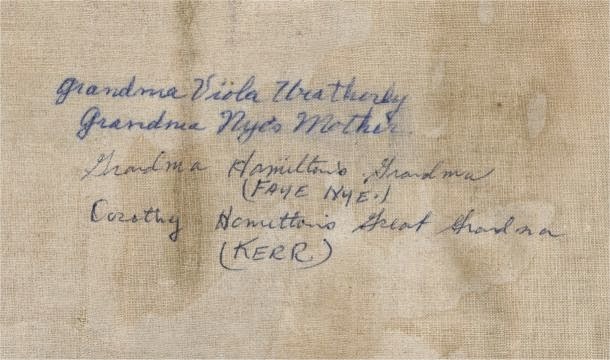 Grandma Viola Weatherly
Grandma Nye's Mother.
Grandma Hamilton's Grandma
(FAYE NYE.)
Dorothy Hamilton's Great Grandma
(KERR)